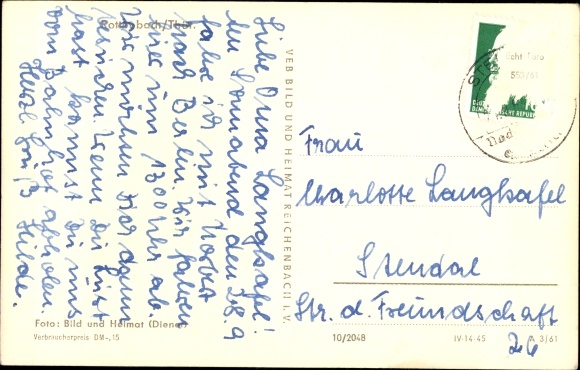 Rottenbach/Thür.
Liebe Oma Langkafel!
Am Sonnabend den 28.9
fahre ich mit Horst
nach Berlin. Wir fahren
hier um 1300 Uhr ab.
Wir möchten Dich dann
besuchen. Wenn Du Lust
hast kannst Du uns
vom Bahnhof abholen.
Herzl. Gruß
Hilde.
Foto: Bild und Heimat (Diener)
Verbraucherpreis DM -,15
VEB BILD UND HEIMAT REICHENBACH i. V.
Echt Foto
DEMOKRATISCHE REPUBLIK
STENDAL
Frau
Charlotte Langkafel
Stendal
Str. d. Freundschaft
26
10/2048
IV-14-45
A 3/61